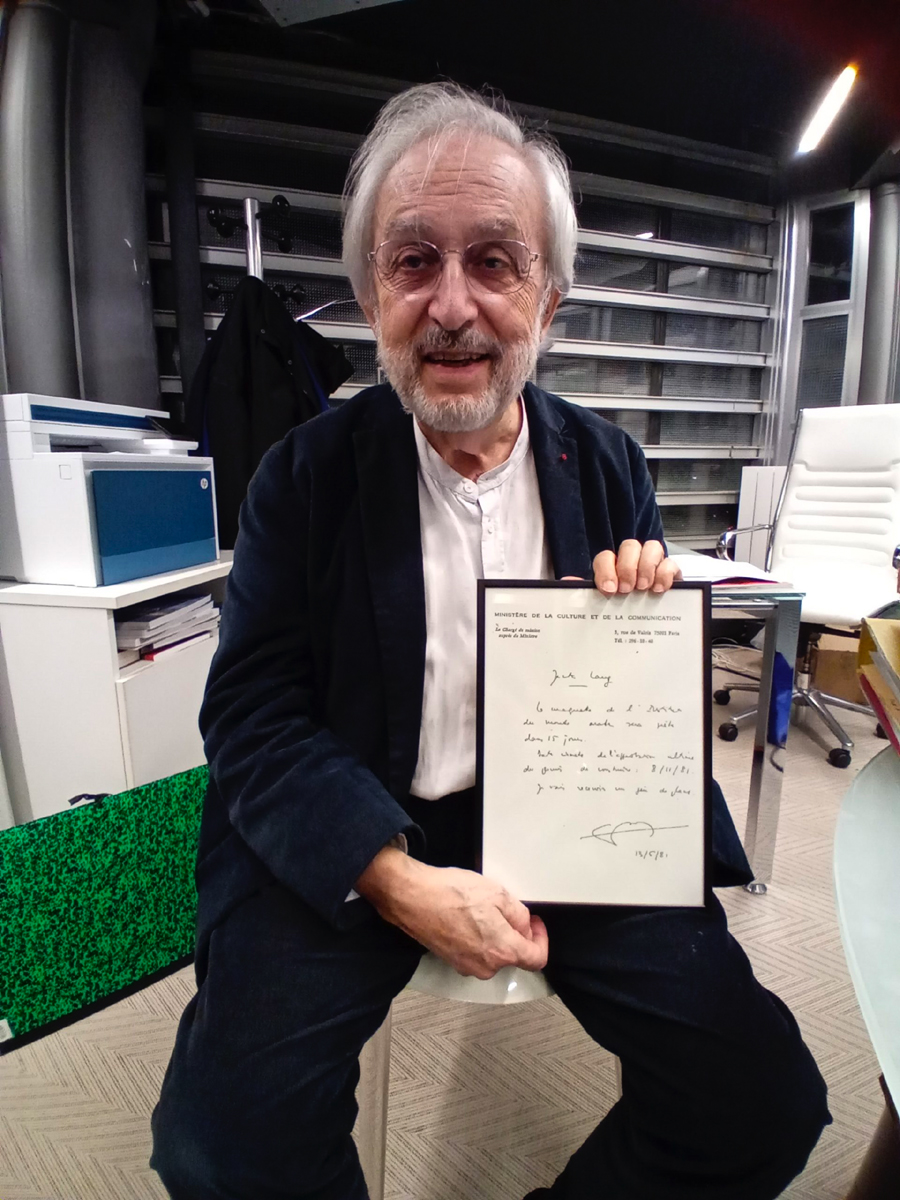 hp
MINISTÈRE DE LA CULTURE ET DE LA COMMUNICATION
Le Chargé de mission
auprès du Ministre
3, rue de Valois 75001 Paris
Tél. : 296-10-40
Jack Lang
La maquette de l'Institut
du monde arabe sera prête
dans 15 jours.
de l'opération
du permis de construire : 8/11/81
Je vais recevoir un
13/5/81